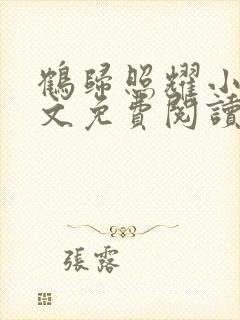 鶴歸照耀小
文免費閱讀
張露